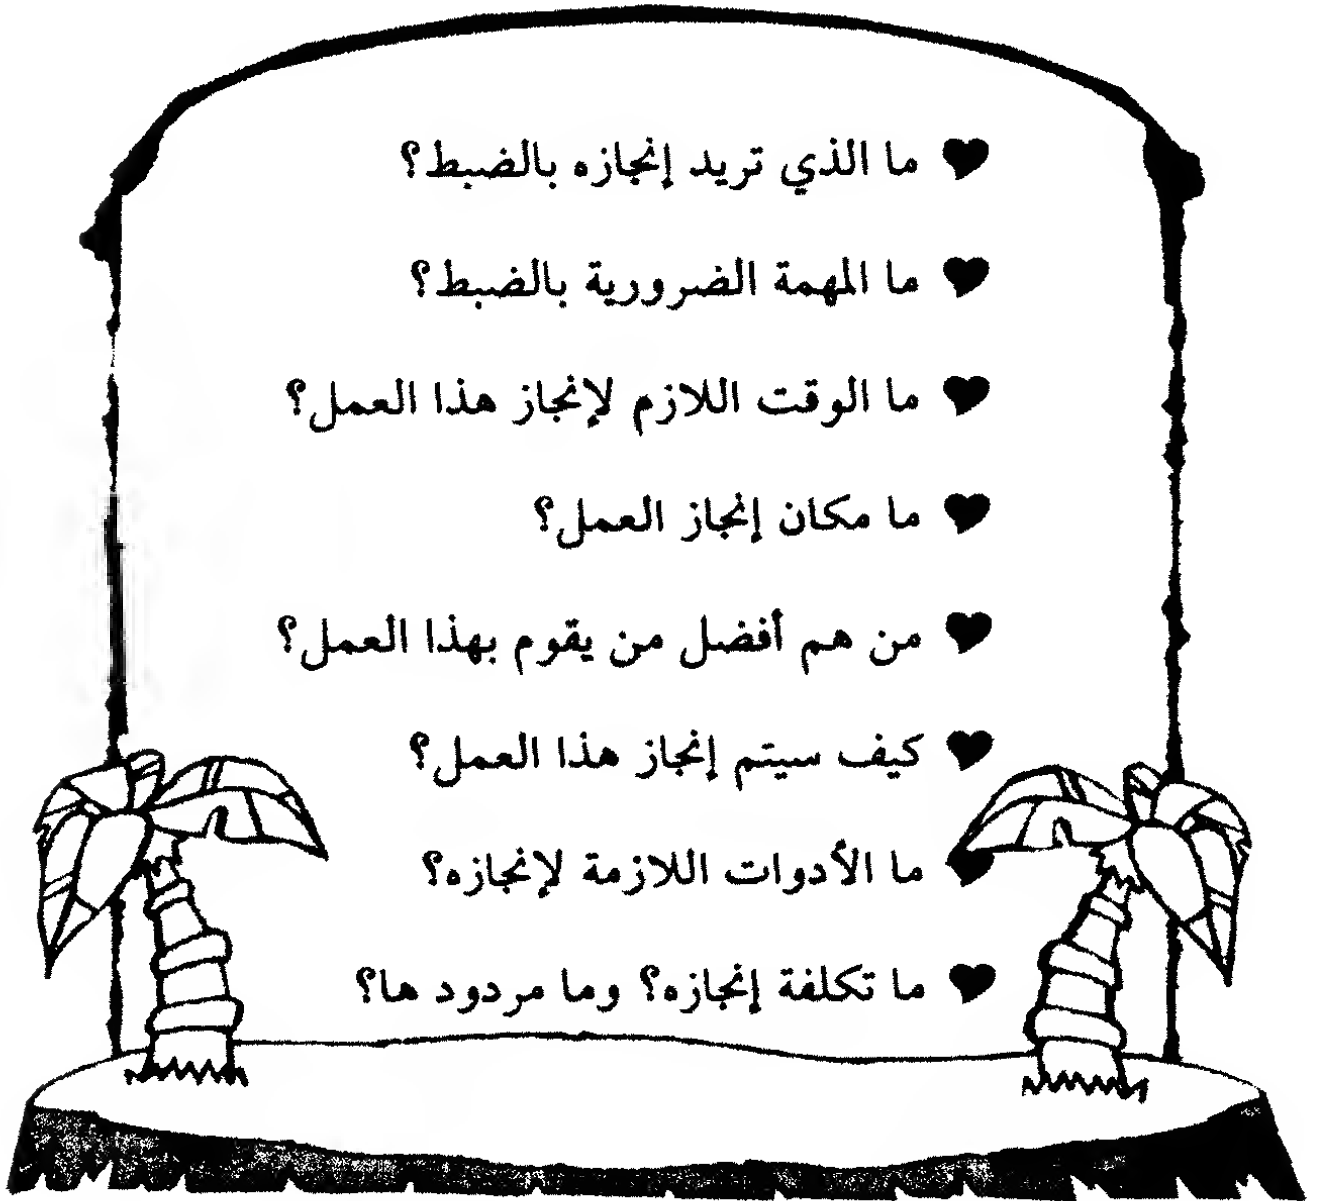 ما الذي تريد إنجازه بالضبط؟
ما المهمة الضرورية بالضبط؟
ما الوقت اللازم لإنجاز هذا العمل؟
ما مكان إنجاز العمل؟
من هم أفضل من يقوم بهذا العمل؟
كيف سيتم إنجاز هذا العمل؟
ما الأدوات اللازمة لإنجازه؟
ما تكلفة إنجازه؟ وما مردود ها؟